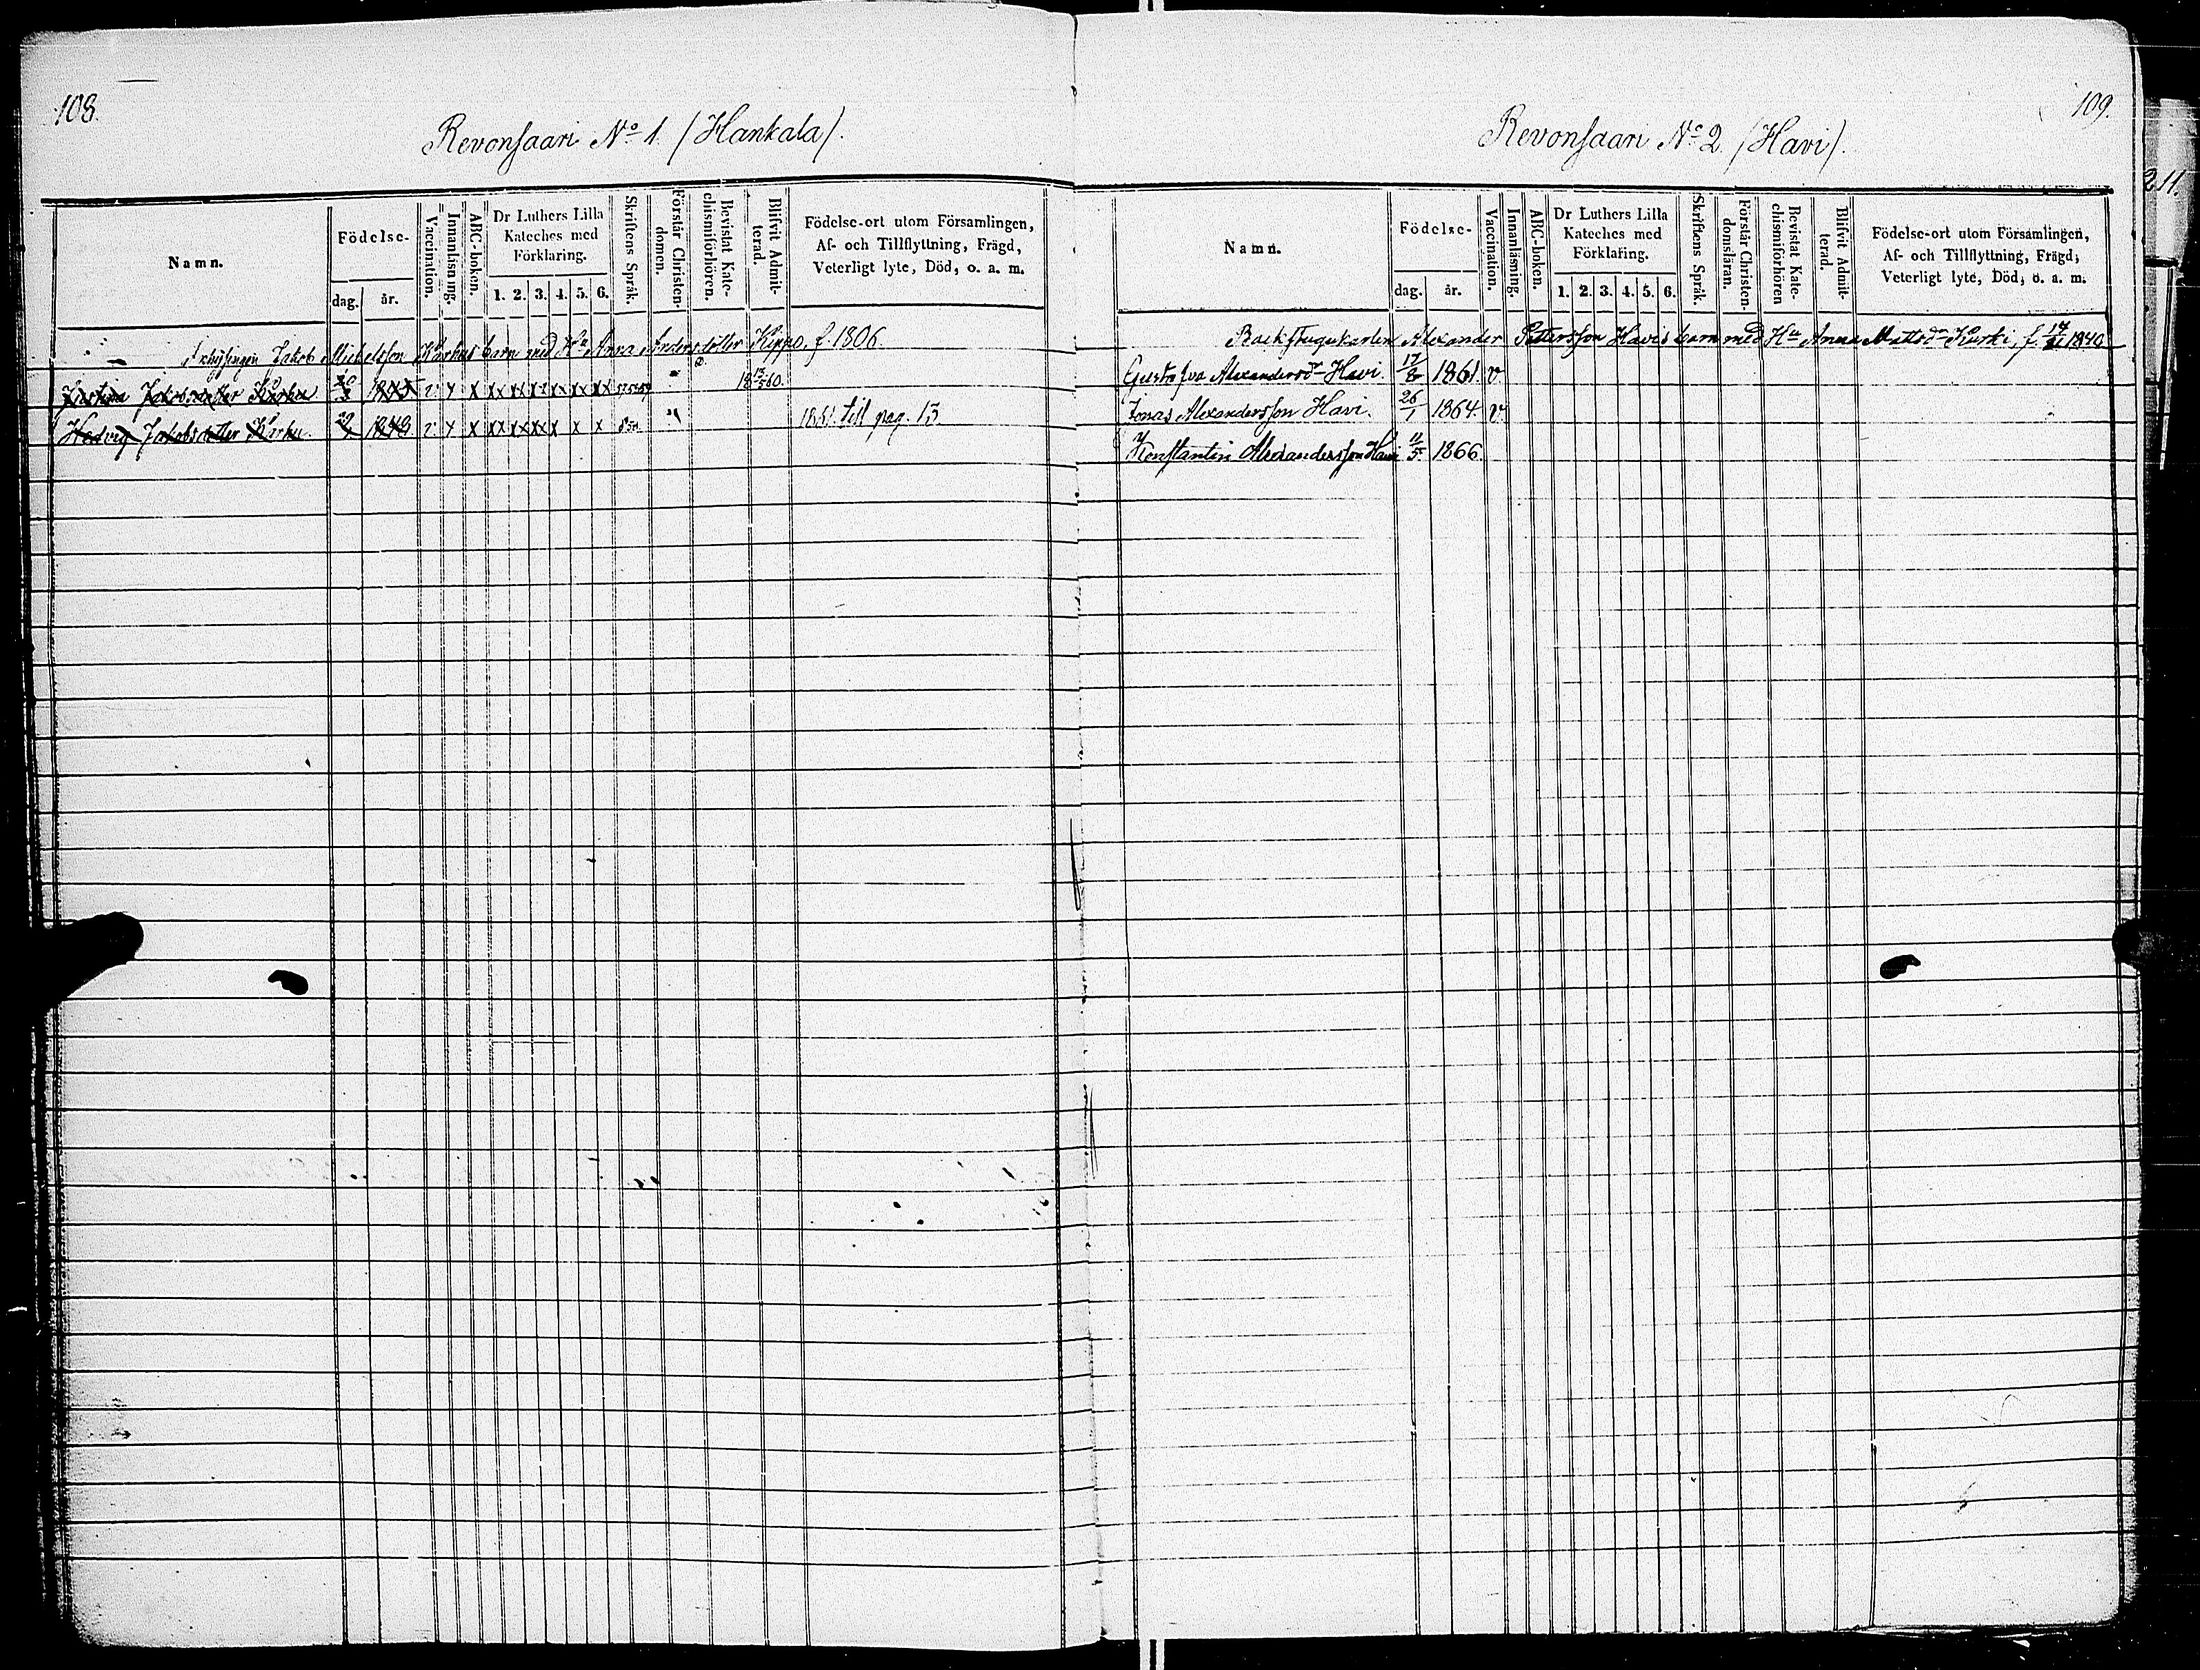 108.
Revonsaari No 1. (Hankala).
Namn.
Födelse-
dag.
år.
Vaccination.
Innanläsning.
ABC-boken.
Dr Luthers Lilla
Kateches med
Förklaring.
1. 2. 3. 4. 5. 6.
Skriftens Språk.
Förstår Christen-
domen.
Bevistat Kate-
chismiförhören.
Blifvit Admit-
terad.
Födelse-ort utom Församlingen,
Af- och Tillflyttning, Frägd,
Veterligt lyte, Död, o. a. m.
Jakob Michelsson Kärhus barn med Hu Anna Andersdotter Kippo, f. 1806
Kristina Jakobsdotter Kärhu v
Hedvig Jakobsdotter Kärhu. v x till pag. 13.
109.
Revonsaari No 2 (Havi).
Namn.
Födelse-
dag.
år.
Vaccination.
Innanläsning.
ABC-boken.
Dr Luthers Lilla
Kateches med
Förklaring.
1. 2. 3. 4. 5. 6.
Skriftens Språk.
Förstår Christen-
domsläran.
Bevistat Kate-
chismiförhören
Blifvit Admit-
terad.
Födelse-ort utom Församlingen,
Af- och Tillflyttning, Frägd,
Veterligt lyte, Död, o. a. m.
Backstugukarlen Alexander Pettersson Havis barn med Hu Anna Mattsdr Kurki, f. 1840
Gusta Eva Alexandersdr Havi. 17/8 1861. v.
Jonas Alexandersson Havi. 26/1 1864. v.
Konstantin Alexandersson Havi 11/5 1866.
211.